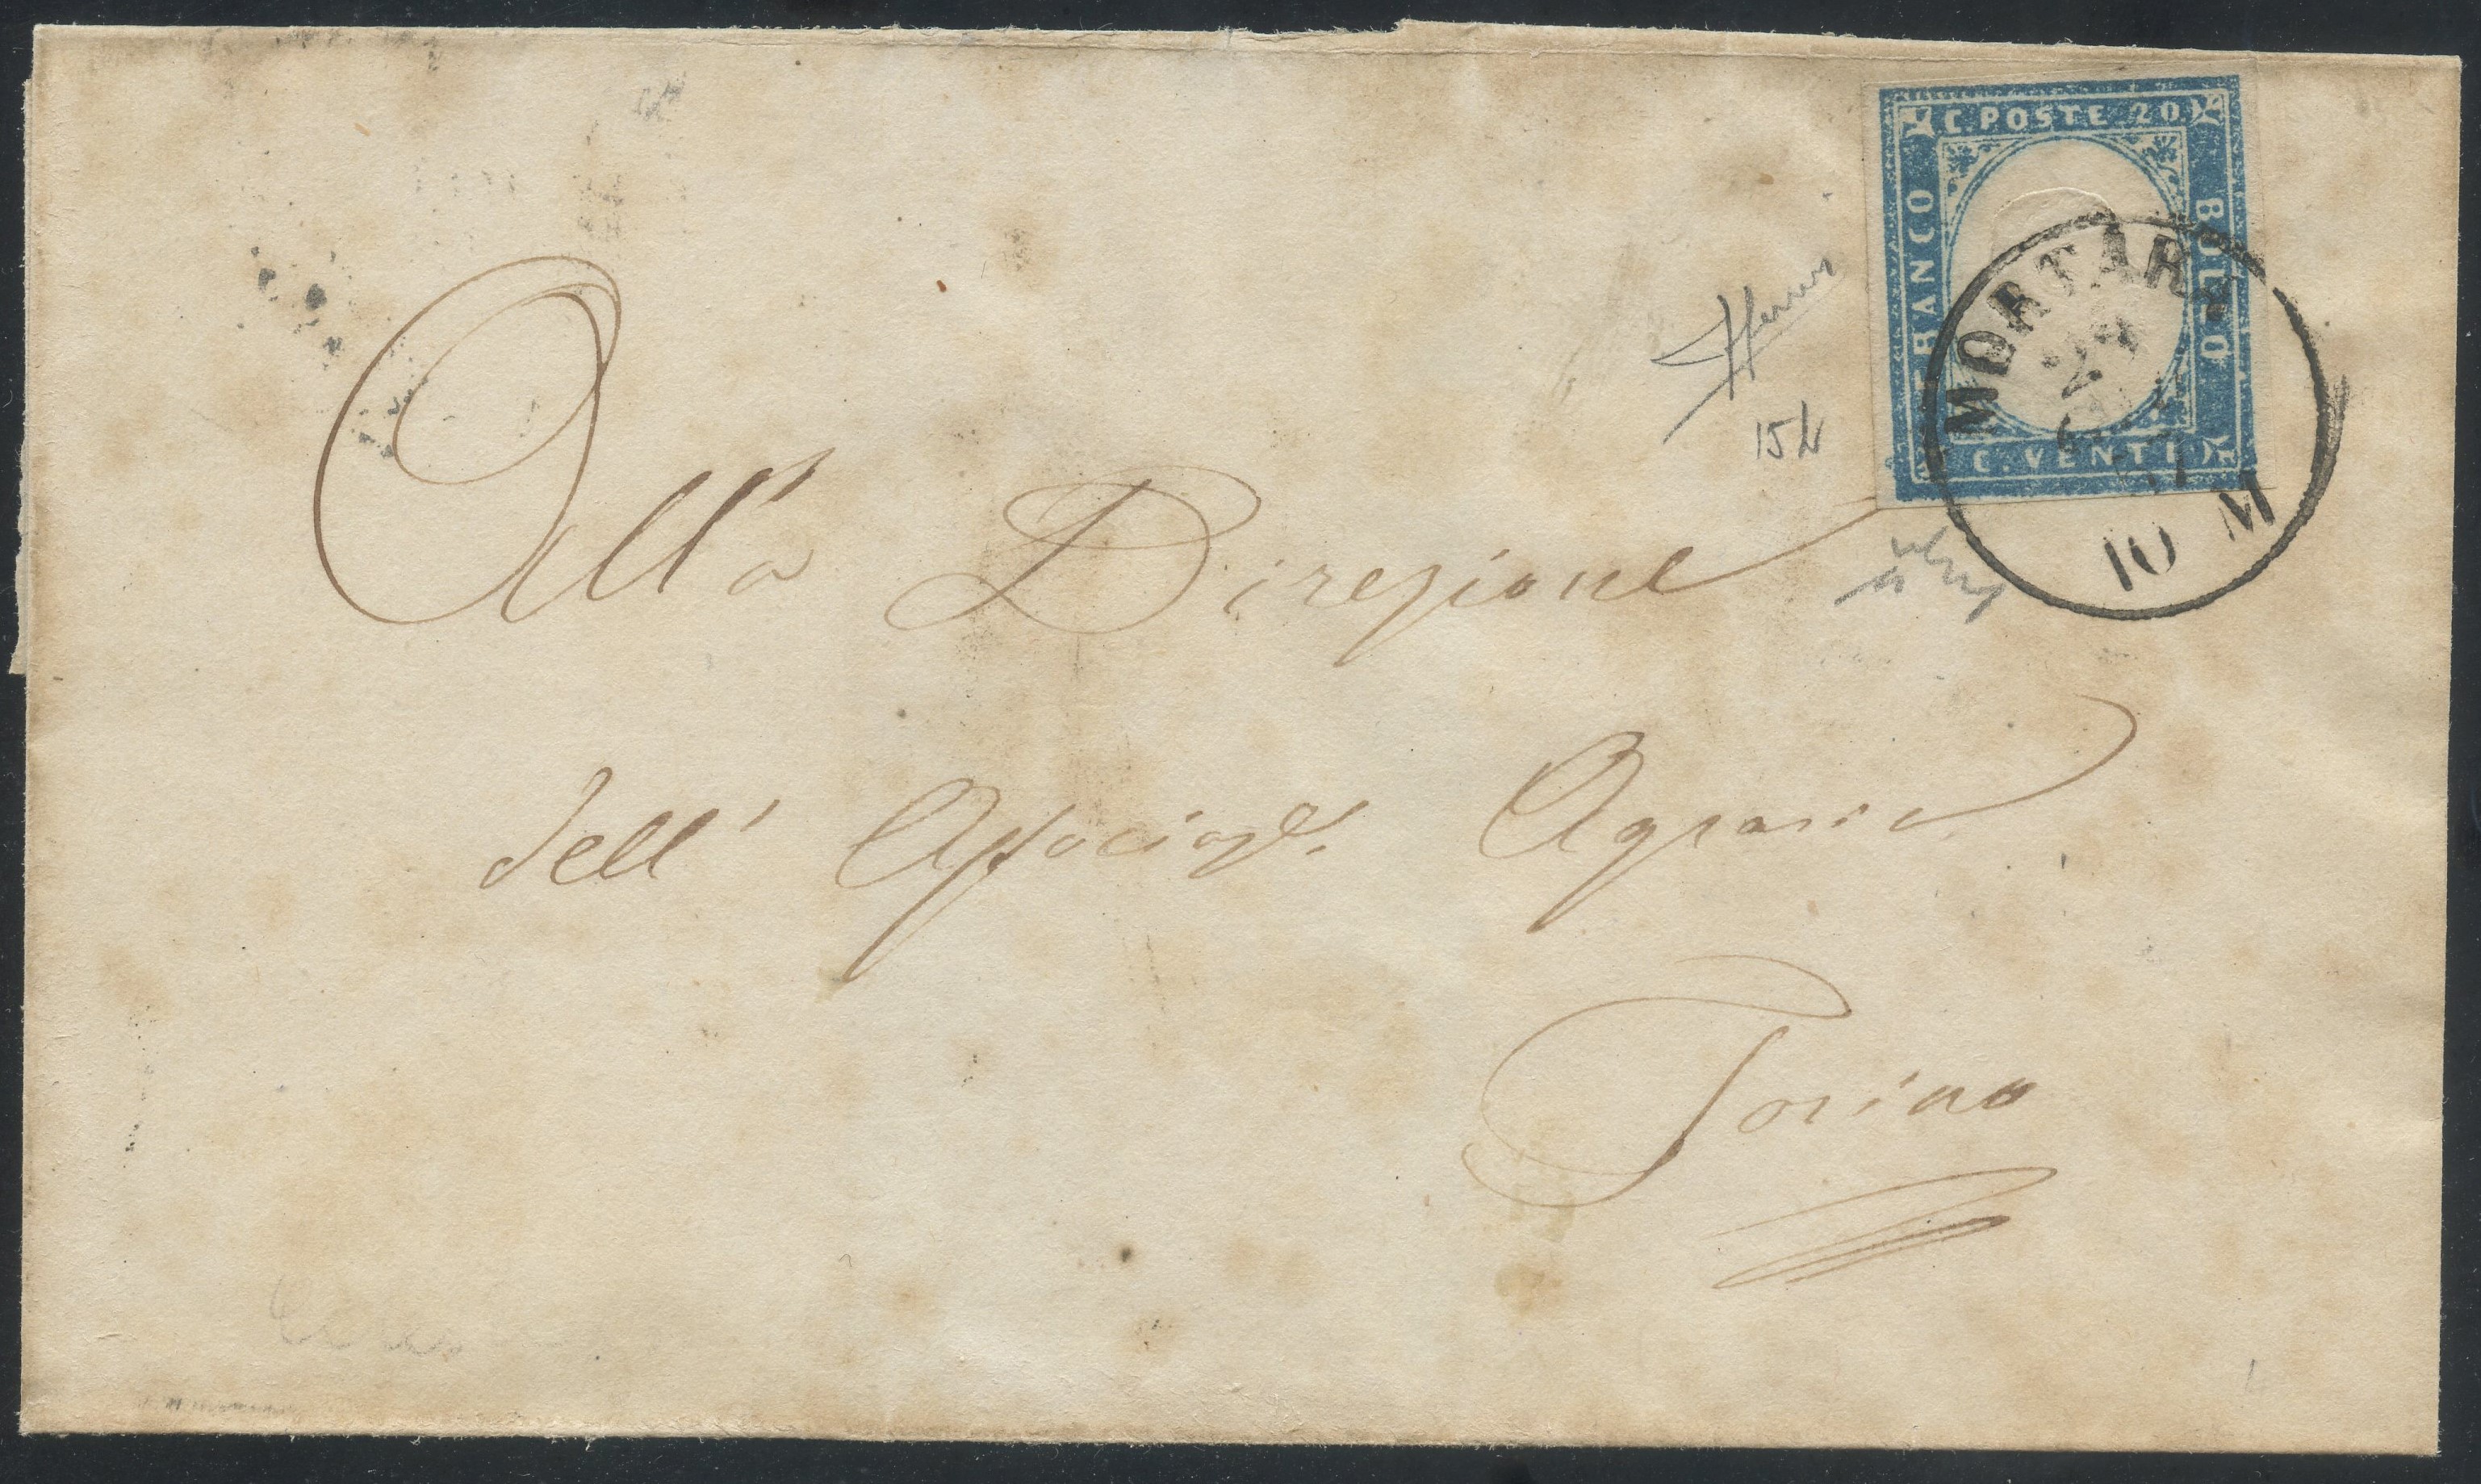 C. POSTE 20.
FRANCO
BOLLO
C. VENTI
MORTARA
10 M
15b
All'a Direzione
dell' Associaze. Agraria
Torino